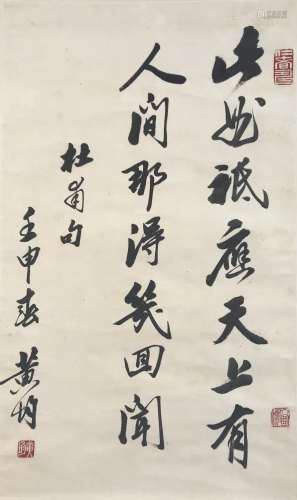 此曲祗應天上有
人間那得幾回聞
杜甫句
壬申春 黃均